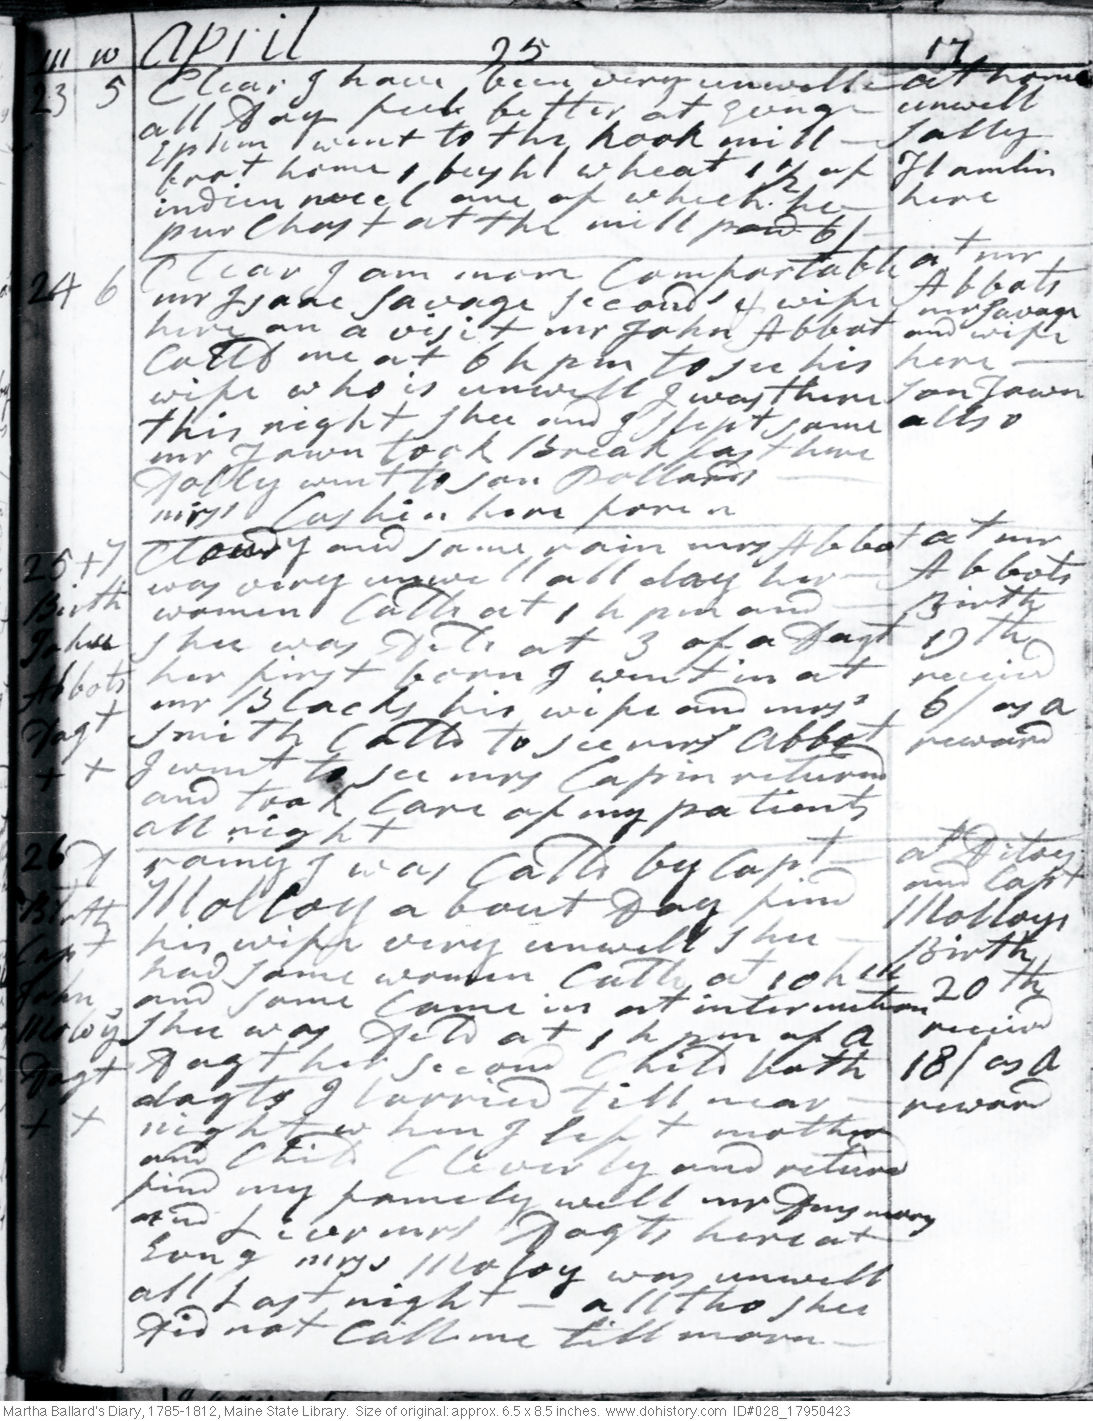 m w April 25 17
23 5 Clear. I have been very unwell
all Day feel better at Evng
Ephm went to the hook mill
brot home 1 bushl wheat 1 1/2 of
indien meel one of which he
purchast at the mill paid 6/
at home
unwell
Sally
Hamlin
here
24 6 Clear I am more Comfortable
mr Isaac Savage second & wife
here on a visit mr John Abbot
Calld me at 6 h pm to see his
wife who is unwell I was there
this night shee and I slept some
mr Town took Breakfast here
Dolly went to son Pollards
mrs Cashin here
at mr
Abbots
mr Savage
and wife
here
son Town
allso
25 + 7
Birth
John
Abbots
Dagt
+ +
Cloudy and some rain mrs Abbot
was very unwell all day her
women Calld at 1 h pm and
shee was Deld at 3 of a Dagt
her first born I went in at
mr Blacks his wife and mrs
Smith Calld to see mrs Abbot
I went to see mrs Capin returnd
and took Care of my patients
all night
at mr
Abbots
Birth
19th
receivd
6/ as a
reward
26 D
Birth
Capt
John
Moloy
Dagt
+ +
rainy I was Calld by Capt
Molloy about Day find
his wife very unwell shee
had some women Calld at 10 h
and some Came in at intermition
shee was Deld at 1 h pm of a
Dagt her second Child both
dagts I tarried till near
night when I left mother
and Child Cleverly and returnd
find my famely well mr
and Livermrs Dagts here at
Evng mrs Moloy was unwell
all Last night - alltho shee
Did not Call me till morn
at Ditoys
and Capt
Molloys
Birth
20th
receivd
18/ as a
reward
Martha Ballard's Diary, 1785-1812, Maine State Library. Size of original: approx. 6.5 x 8.5 inches. www.dohistory.com ID#028_17950423